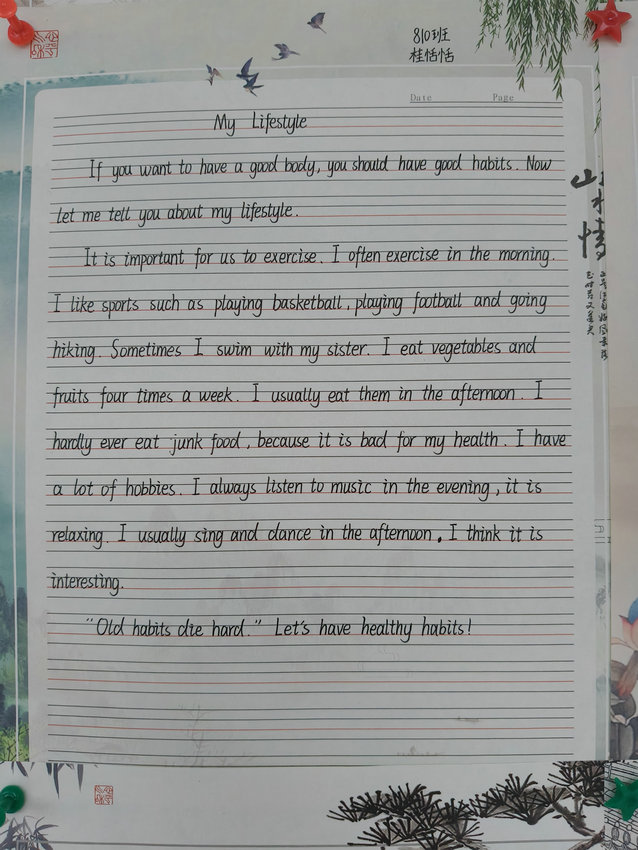 810班
桂恬恬
Date Page
My Lifestyle
If you want to have a good body, you should have good habits. Now
let me tell you about my lifestyle.
It is important for us to exercise. I often exercise in the morning.
I like sports such as playing basketball, playing football and going
hiking. Sometimes I swim with my sister. I eat vegetables and
fruits four times a week. I usually eat them in the afternoon. I
hardly ever eat junk food, because it is bad for my health. I have
a lot of hobbies. I always listen to music in the evening, it is
relaxing. I usually sing and dance in the afternoon. I think it is
interesting.
"Old habits die hard." Let's have healthy habits!